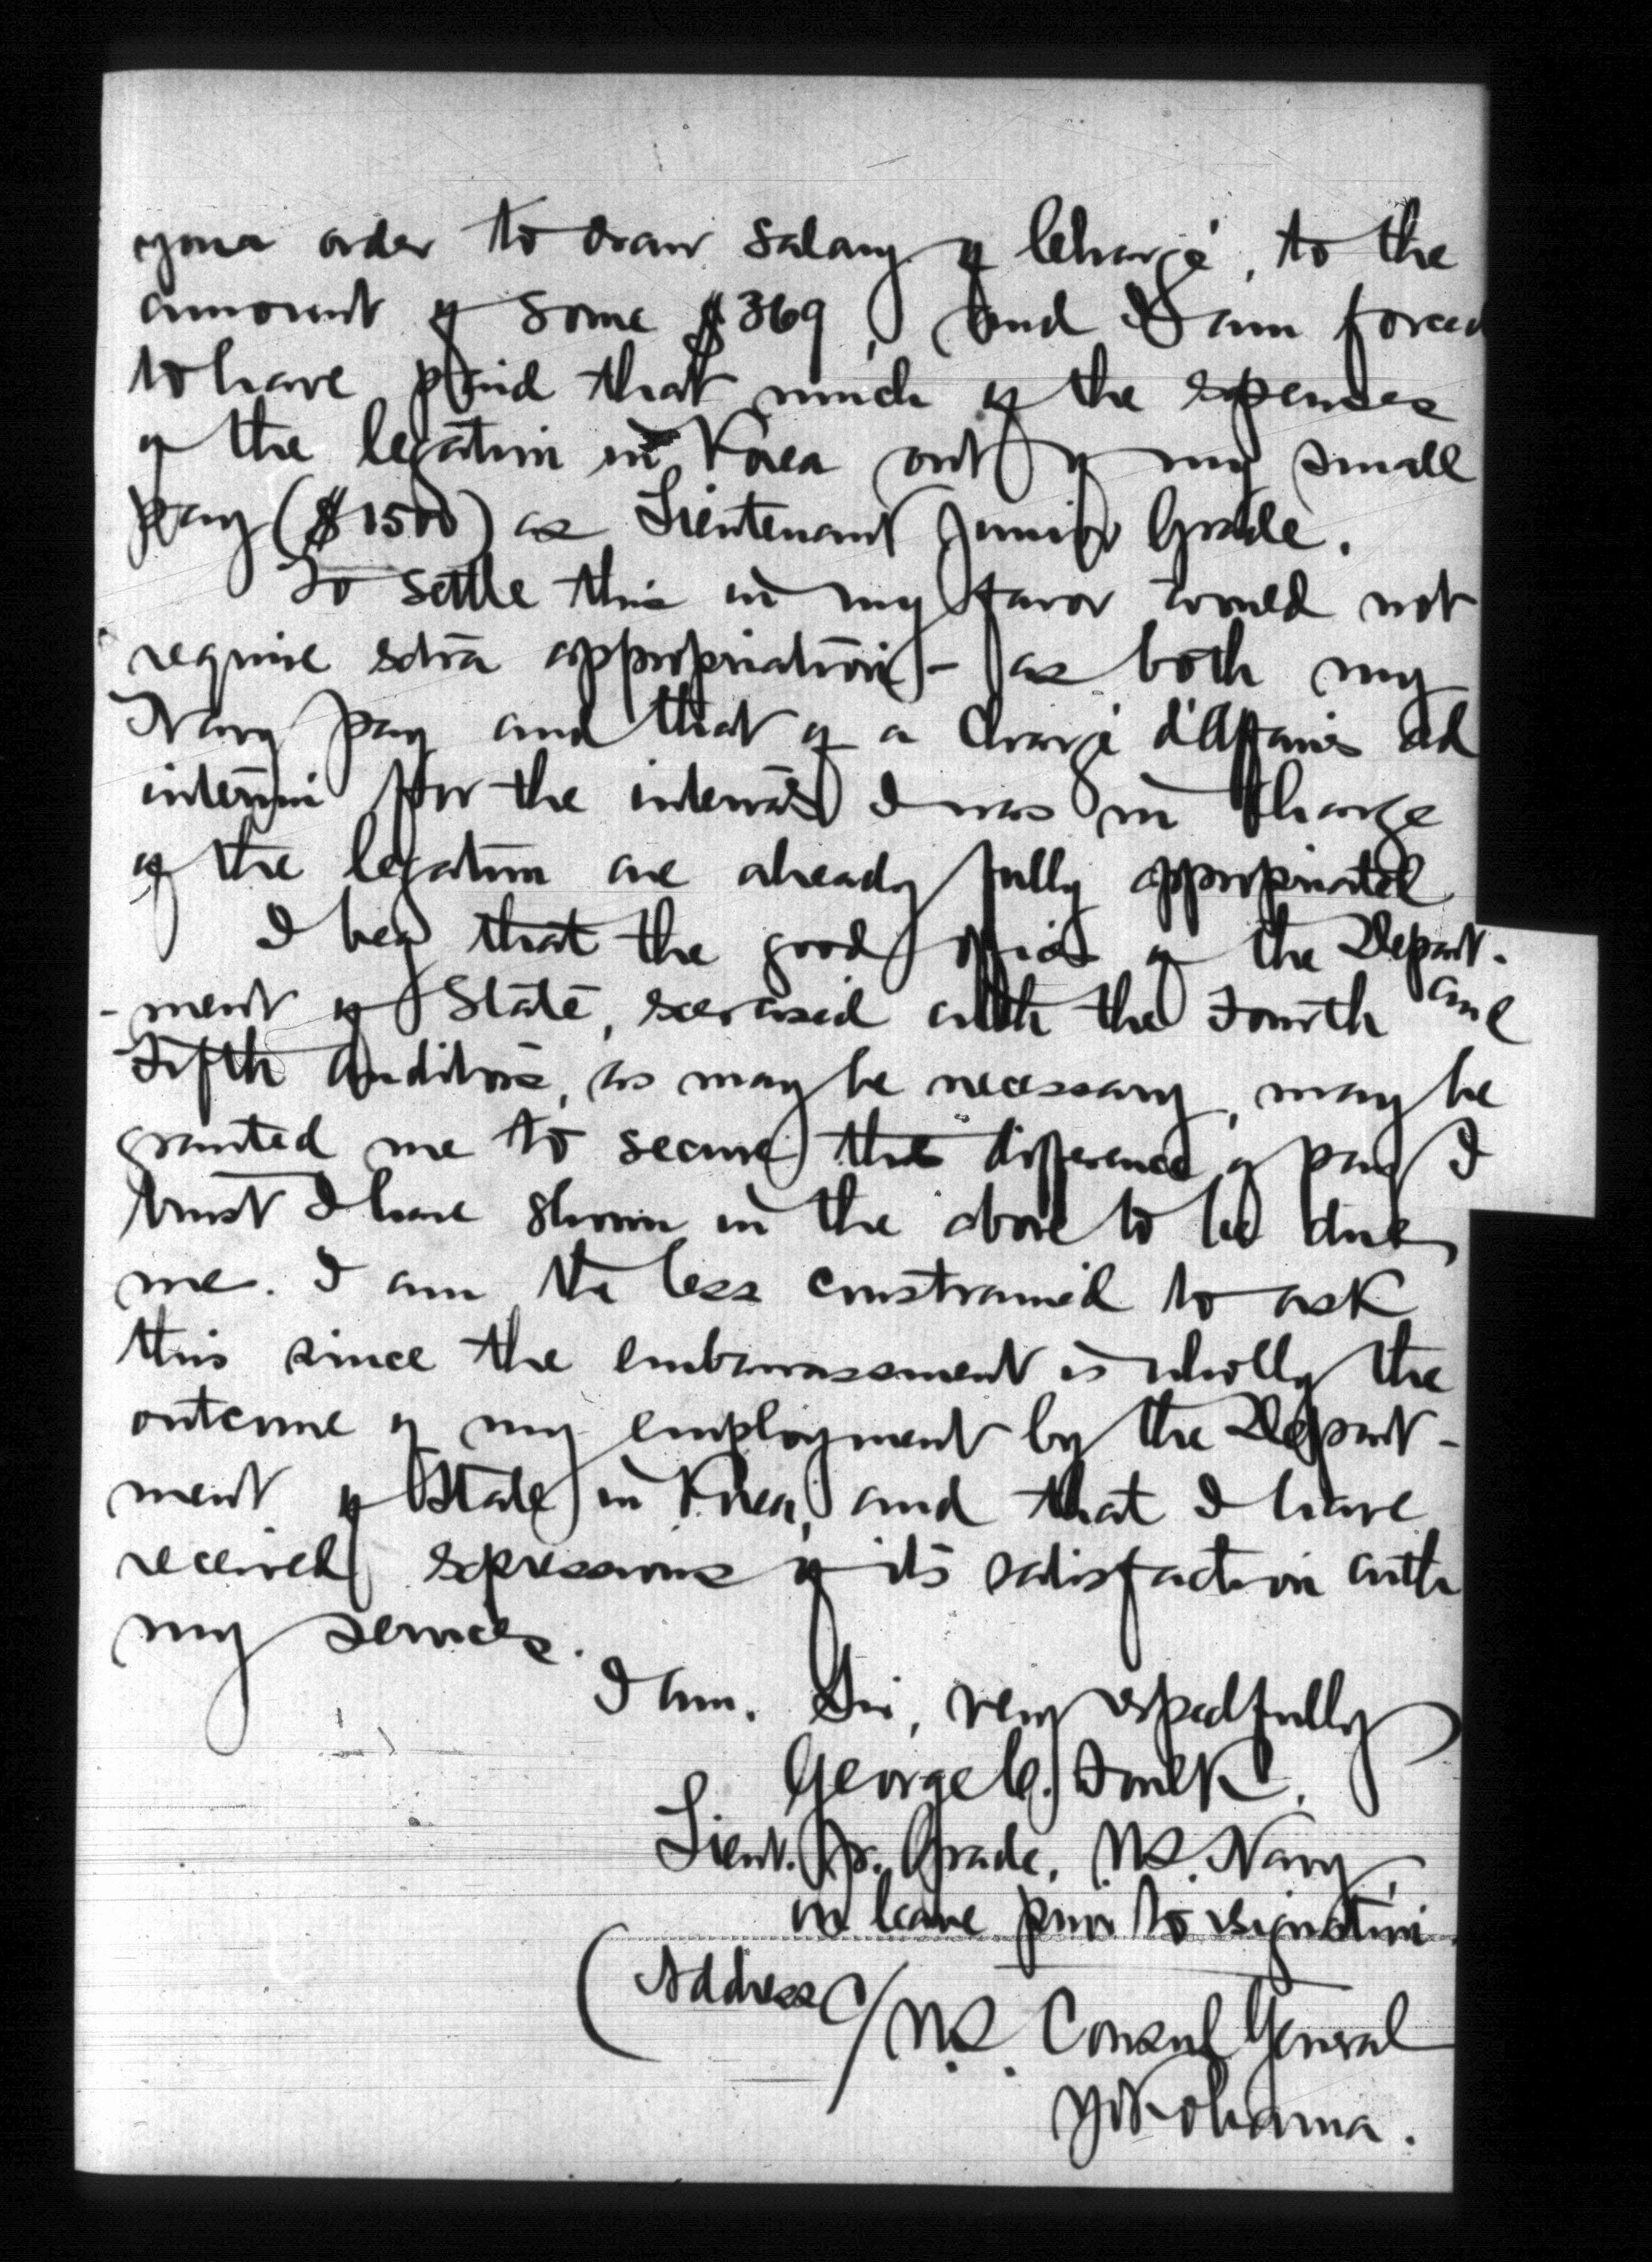 your order to draw salary of Chargé, to the
amount of some $369, and I am forced
to have paid that much of the expenses
of the legation in Korea out of my small
pay ($1500) as Lieutenant Junior Grade.
To settle this in my favor would not
require extra appropriation - as both my
Navy pay and that of a Chargé d'Affaires ad
interim for the interval I was in charge
of the legation are already fully appropriated
I beg that the good offices of the Depart-
-ment of State, exercised with the Fourth and
Fifth Auditors, as may be necessary, may be
granted me to secure the difference of pay I
trust I have shown in the above to be due
me. I am the less constrained to ask
this since the embarrassment is wholly the
outcome of my employment by the Depart-
ment of State in Korea, and that I have
received expressions of its satisfaction with
my services.
I am, Sir, very respectfully
George C. Foulk.
Lieut. Jr. Grade, U.S. Navy,
on leave prior to resignation.
(Address c/ U.S. Consul General
Yokohama.